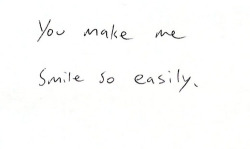 You make me
Smile so easily.